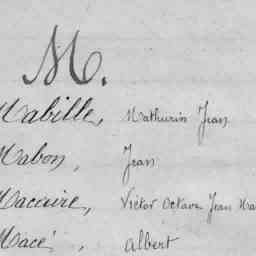 M.
Mabille, Mathurin Jean
Mabon, Jean
Macaire, Victor Octave Jean Ma
Macé, Albert